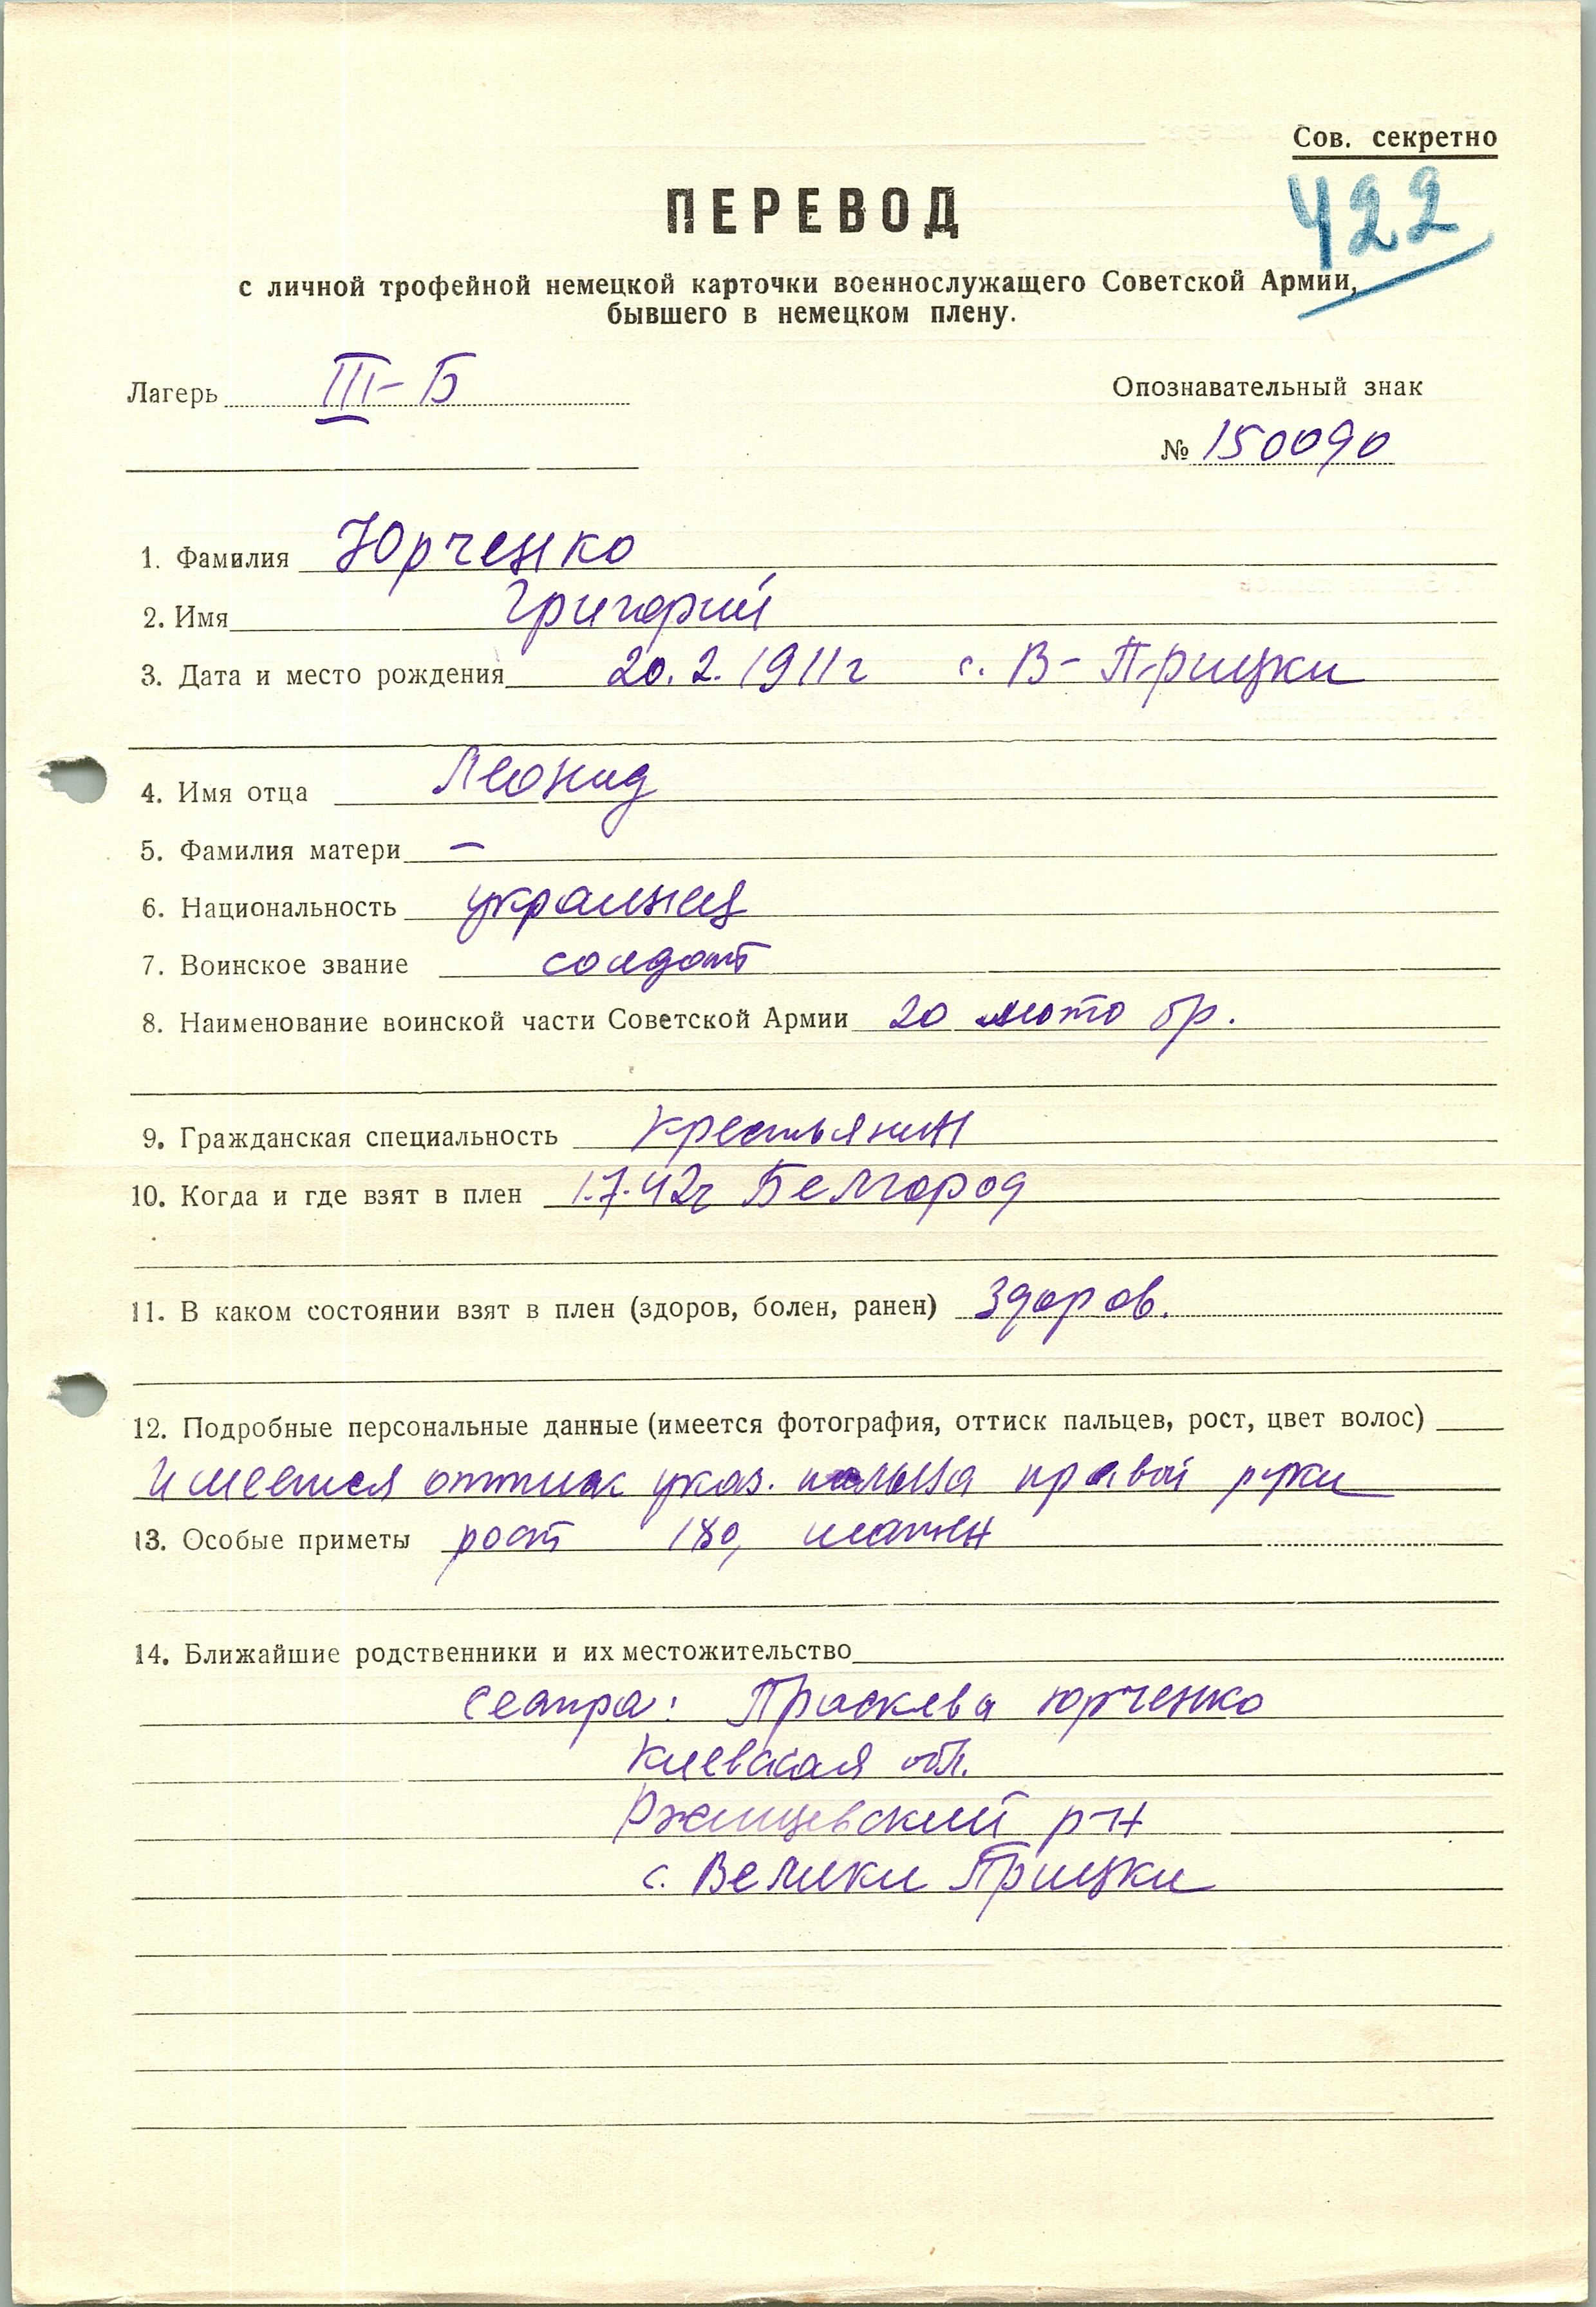 Сов. секретно
422
ПЕРЕВОД
с личной трофейной немецкой карточки военнослужащего Советской Армии,
бывшего в немецком плену.
Лагерь III-Б
Опознавательный знак
№ 150090
1. Фамилия Юрченко
2. Имя Григорий
3. Дата и место рождения 20.2.1911г с. В-Прицки
4. Имя отца Леонид
5. Фамилия матери —
6. Национальность украинец
7. Воинское звание солдат
8. Наименование воинской части Советской Армии 20 мото бр.
9. Гражданская специальность крестьянин
10. Когда и где взят в плен 1.7.42г Белгород
11. В каком состоянии взят в плен (здоров, болен, ранен) здоров.
12. Подробные персональные данные (имеется фотография, оттиск пальцев, рост, цвет волос)
имеется оттиск указ. пальца правой руки
13. Особые приметы рост 180, шатен
14. Ближайшие родственники и их местожительство
сестра: Праскева Юрченко
Киевская обл.
Ржищевский р-н
с. Велики Прицки